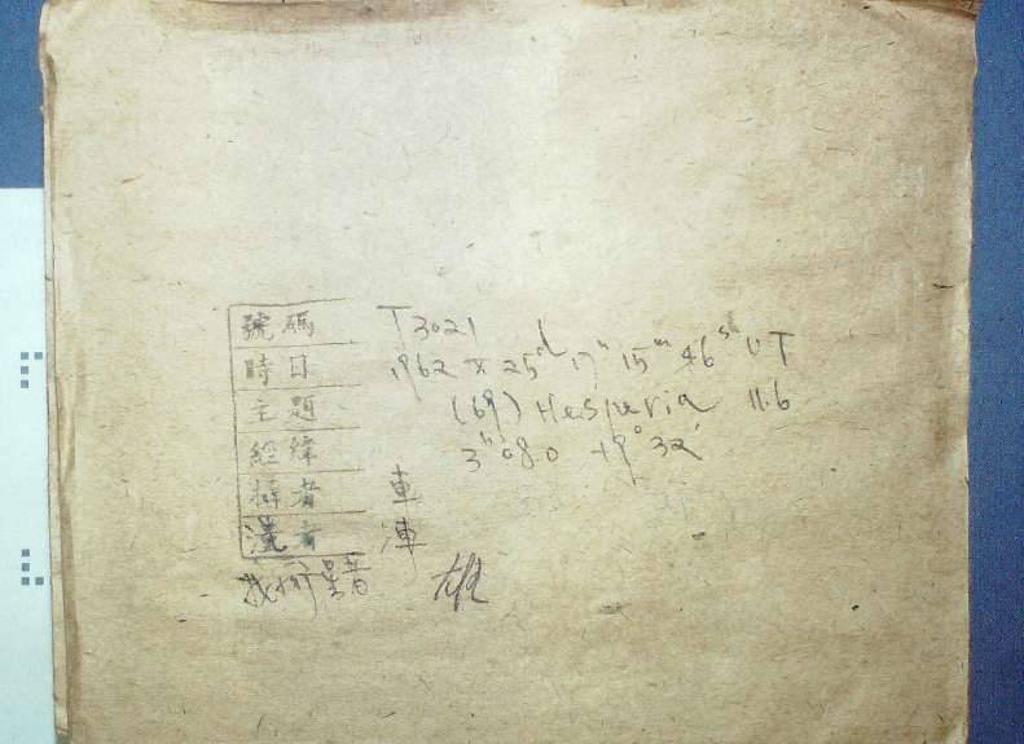 號碼 T3021
時日 1962 X 25d 17h 15m 46s UT
主題 (69) Hesperia 11.6
經緯 3h 08.0 +19° 32'
攝者 車
洗者
找